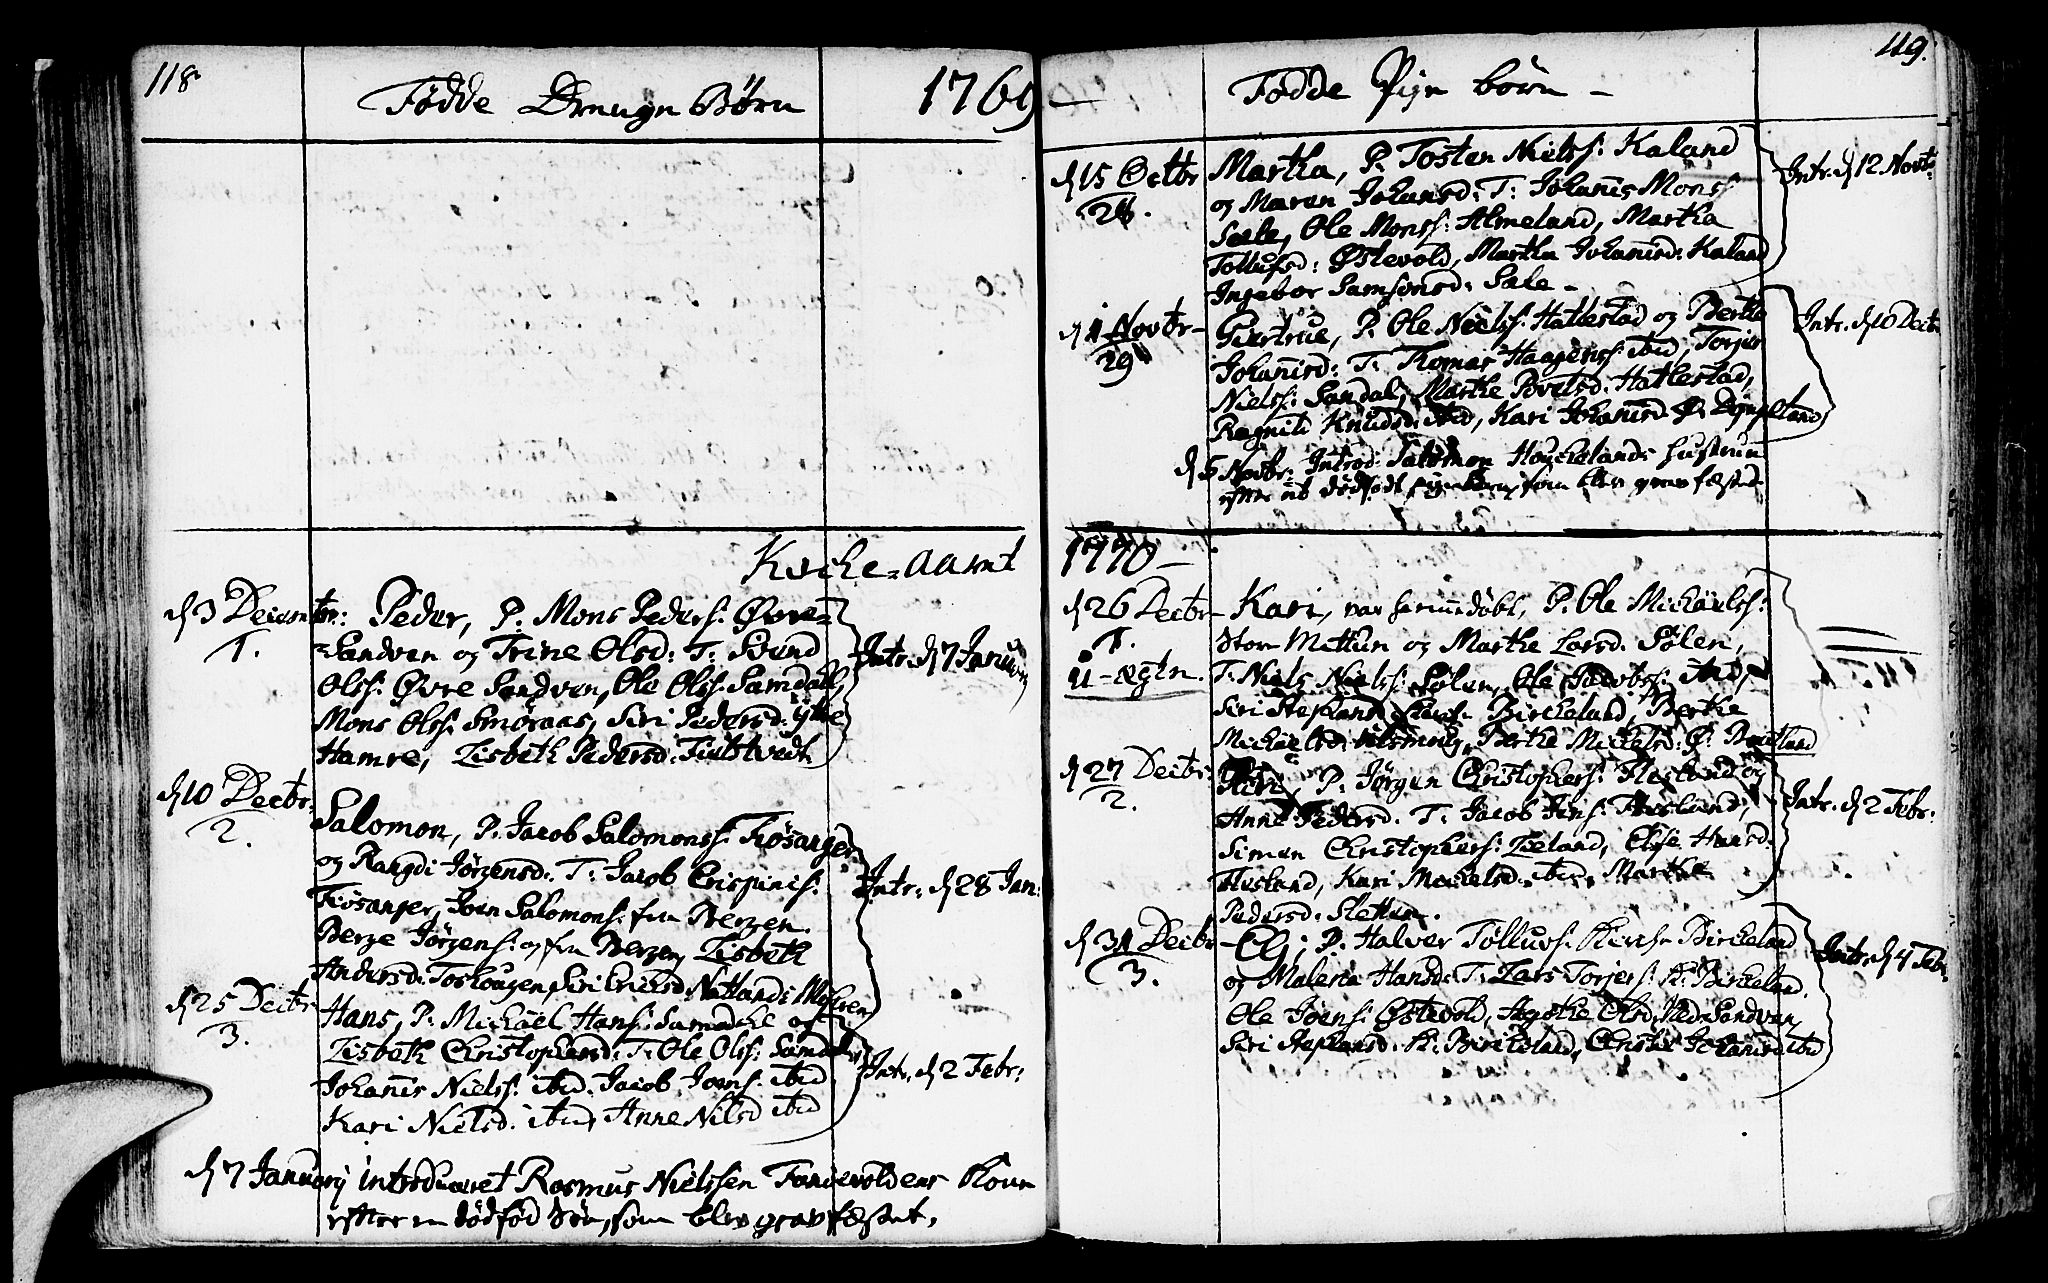 118
Fødde Drenge Børn
1769
Kirke-Aaret
d 3 Decembr: Peder, P. Mons Peders: Øvre-
1.
Sandven og Trine Olsd: T: Svend
Olss: Øvre Sandven, Ole Olss: Samdahl,
Mons Olss: Smøraas, Siri Pedersd: Ytre
Hamre, Lisbeth Pedersd: Tveitvedt
Intr. d 7 January
d 10 Decbr:
2.
Salomon, P. Jacob Salomonss: Fiøsanger
og Rangdi Jørgensd: T: Jacob Crispinis:
Fiøsanger, Joen Salomons: fra Bergen
Berge Jørgens: og fra Bergen Lisbeth
Andersd: Toskougen, Siri Ericsd: Natlands Myhren
Intr: d 28 Jan:
d 25 Decbr
3.
Hans, P. Michael Hans: Samdahl og
Lisbeth Christophersd: T: Ole Olss: Samdahl
Johanis Nielss: ibid. Jacob Joens: ibid
Kari Nielsd: ibid, Anne Nilsd ibid
Intr. d 2 Febr:
d 7 January introduceret Rasmus Nielssen Kone
efter en dødfød Søn, som blev gravfæstet.
119.
Fødde Pige børn -
d 15 Octbr
28.
Martha, P. Tosten Nielss: Kaland
og Maren Johansd: T: Johanis Mons:
Sæle, Ole Monss: Almeland, Martha
Tollufsd: Østevold, Martha Johanisd: Kaland
Ingebor Samsonsd: Sæle -
Intr. d 12 Novbr:
d 1 Novbr -
29
Giertrue, P. Ole Nielss: Hatlestad og Berthe
Johanisd: T: Thomas Haagenss: ibid, Torjer
Nielss: Sandal, Marthe Povelsd: Hatlestad,
Ragnild Knudsd: ibid, Kari Johanisd:
Intr. d 10 Decbr
d 5 Novbr: Introd: Salomon Houckelands Hustrue
efter et dødfødt pigebarn, som blev gravfæstet
1770 -
d 26 Decbr -
1.
u-ægte.
Kari, var hiemmedøbt, P. Ole Michaelss:
Stor Mittun og Marthe Larsd: Sølen,
T: Niels Nielss: Sølen, Ole Jacobss: ibid,
Siri Stephansd: Kirch-Birckeland, Berthe
Michaelsd: Berthe Mickelsd:
d 27 Decbr:
2.
Siri, P. Jørgen Christophers: Flesland og
Anne Pedersd. T: Jacob Jens: Flesland,
Simen Christophers: Lieland, Else Hansd:
Flesland, Kari Mickelsd: ibid, Marthe
Pedersd: Sletten.
Intr. d 2 Febr:
d 31 Decbr
3.
Eli, P. Halver Tollevs: Kirch-Birckeland
og Malena Hansd: T: Lars Torjers: K: Birckeland.
Ole Joens: Østevold, Agothe Olsd: Ned: Sandven,
Siri Stephansd: K: Birckeland, Christi Johanisd ibid
Intr. d 4 Febr